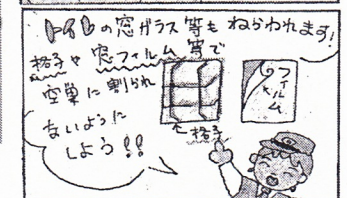 トイレの窓ガラス等もねらわれます!
格子や窓フィルム等で
空巣に割られ
ないように
しよう!!
フィルム
←格子